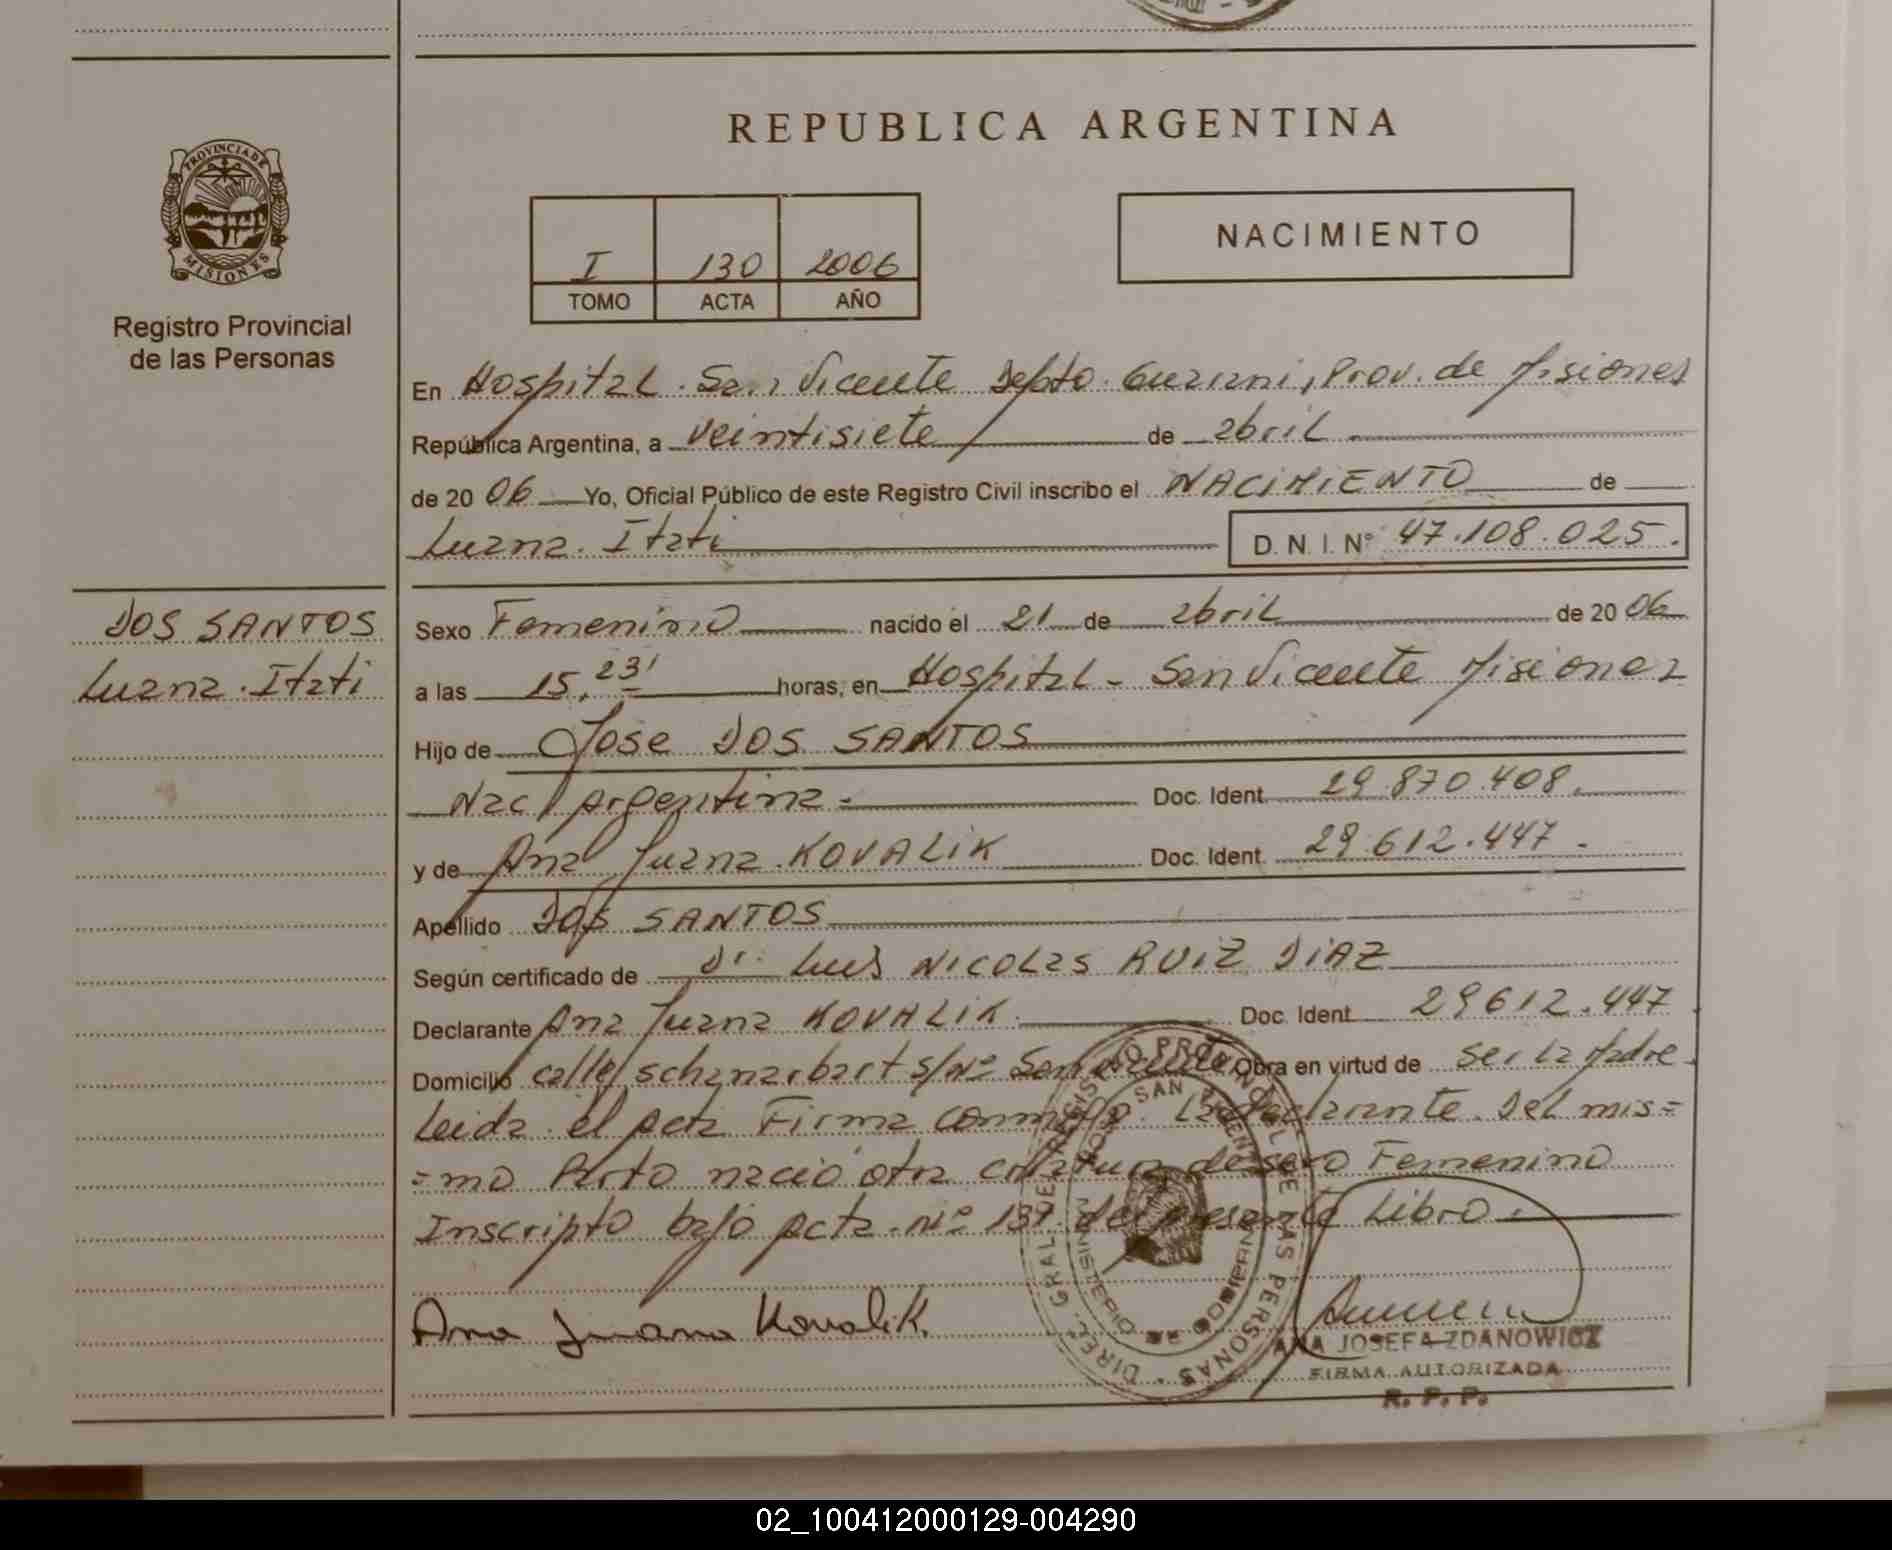 REPUBLICA ARGENTINA
PROVINCIA DE
MISIONES
Registro Provincial
de las Personas
I 130 2006
TOMO ACTA AÑO
NACIMIENTO
En Hospital. San Vicente Depto. Guarani, Prov. de Misiones
República Argentina, a veintisiete de abril
de 20 06 Yo, Oficial Público de este Registro Civil inscribo el NACIMIENTO de
Luana. Itati D. N. I. Nº 47.108.025.
DOS SANTOS
Luana. Itati
Sexo Femenino nacido el 21 de abril de 20 06
a las 15,23' horas, en Hospital - San Vicente Misiones
Hijo de Jose DOS SANTOS
Nac Argentina - Doc. Ident. 29.870.408.
y de Ana Juana KOVALIK Doc. Ident. 29.612.447.
Apellido DOS SANTOS
Según certificado de Dr. Luis NICOLAS RUIZ DIAZ
Declarante Ana Juana KOVALIK Doc. Ident. 29612.447
Domicilio calle s/Nº San Vicente Obra en virtud de ser la Madre
Leida el acta Firma conmigo. La declarante. Del mis=
=mo Parto nació otra criatura de sexo Femenino
Inscripto bajo acta. nº del presente Libro.
Ana Juana Kovalik.
DIREC. GRAL DEL REGISTRO PROVINCIAL DE LAS PERSONAS
SAN VICENTE
MINISTERIO DE GOBIERNO
ANA JOSEFA ZDANOWICZ
FIRMA AUTORIZADA
R. P. P.
02_100412000129-004290